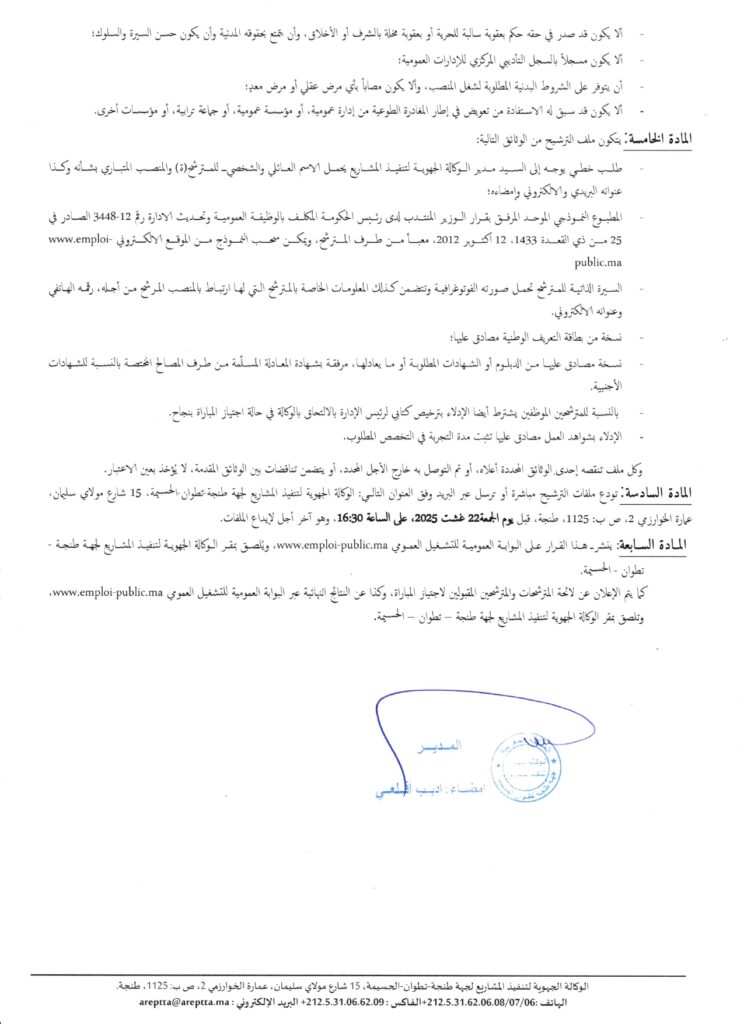 - ألا يكون قد صدر في حقه حكم بعقوبة سالبة للحرية أو بعقوبة مخلة بالشرف أو الأخلاق، وأن يتمتع بحقوقه المدنية وأن يكون حسن السيرة والسلوك؛
- ألا يكون مسجلاً بالسجل التأديبي المركزي للإدارات العمومية؛
- أن يتوفر على الشروط البدنية المطلوبة لشغل المنصب، وألا يكون مصاباً بأي مرض عقلي أو مرض معدٍ؛
- ألا يكون قد سبق له الاستفادة من تعويض في إطار المغادرة الطوعية من إدارة عمومية، أو مؤسسة عمومية، أو جماعة ترابية، أو مؤسسات أخرى.
المادة الخامسة: يتكون ملف الترشيح من الوثائق التالية:
- طلب خطي يوجه إلى السيد مدير الوكالة الجهوية لتنفيذ المشاريع يحمل الاسم العائلي والشخصي للمترشح(ة) والمنصب المتباري بشأنه وكذا
عنوانه البريدي والالكتروني وإمضاءه؛
- المطبوع النموذجي الموحد المرفق بقرار الوزير المنتدب لدى رئيس الحكومة المكلف بالوظيفة العمومية وتحديث الادارة رقم 12-3448 الصادر في
25 من ذي القعدة 1433، 12 أكتوبر 2012، معبأ من طرف المترشح، ويمكن سحب النموذج من الموقع الالكتروني www.emploi-
public.ma
- السيرة الذاتية للمترشح تحمل صورته الفوتوغرافية وتتضمن كذلك المعلومات الخاصة بالمترشح التي لها ارتباط بالمنصب المرشح من أجله، رقمه الهاتفي
وعنوانه الالكتروني.
- نسخة من بطاقة التعريف الوطنية مصادق عليها؛
- نسخة مصادق عليها من الدبلوم أو الشهادات المطلوبة أو ما يعادلها، مرفقة بشهادة المعادلة المسلّمة من طرف المصالح المختصة بالنسبة للشهادات
الأجنبية.
- بالنسبة للمترشحين الموظفين يشترط أيضا الإدلاء بترخيص كتابي لرئيس الإدارة بالالتحاق بالوكالة في حالة اجتياز المباراة بنجاح.
- الإدلاء بشواهد العمل مصادق عليها تثبت مدة التجربة في التخصص المطلوب.
وكل ملف تنقصه إحدى الوثائق المحددة أعلاه، أو تم التوصل به خارج الأجل المحدد، أو يتضمن تناقضات بين الوثائق المقدمة، لا يُؤخذ بعين الاعتبار.
المادة السادسة: تودع ملفات الترشيح مباشرة أو ترسل عبر البريد وفق العنوان التالي: الوكالة الجهوية لتنفيذ المشاريع لجهة طنجة-تطوان-الحسيمة، 15 شارع مولاي سليمان،
عمارة الخوارزمي 2، ص ب: 1125، طنجة، قبل يوم الجمعة22 غشت 2025، على الساعة 16:30، وهو آخر أجل لإيداع الملفات.
المادة السابعة: ينشر هذا القرار على البوابة العمومية للتشغيل العمومي www.emploi-public.ma، ويُلصق بمقر الوكالة الجهوية لتنفيذ المشاريع لجهة طنجة -
تطوان - الحسيمة.
كما يتم الإعلان عن لائحة المترشحات والمترشحين المقبولين لاجتياز المباراة، وكذا عن النتائج النهائية عبر البوابة العمومية للتشغيل العمومي www.emploi-public.ma،
وتلصق بمقر الوكالة الجهوية لتنفيذ المشاريع لجهة طنجة – تطوان – الحسيمة.
المدير
امضاء: اديب
الوكالة الجهوية لتنفيذ المشاريع لجهة طنجة-تطوان-الحسيمة، 15 شارع مولاي سليمان، عمارة الخوارزمي 2، ص ب: 1125، طنجة.
الهاتف :212.5.31.62.06.08/07/06+الفاكس : 212.5.31.06.62.09+ البريد الإلكتروني : areptta@areptta.ma